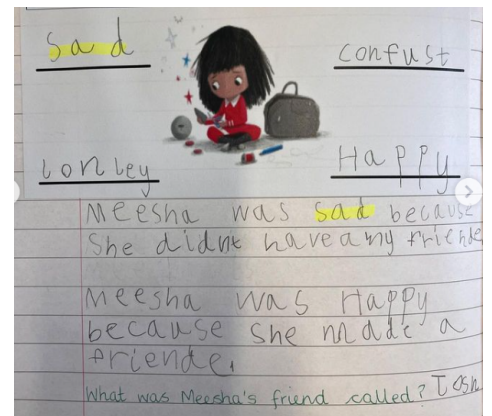 Sad
confust
Lonley
Happy
Meesha was sad because
She didnt have any friende
Meesha was Happy
because she made a
friende.
What was Meesha's friend called? Tosh